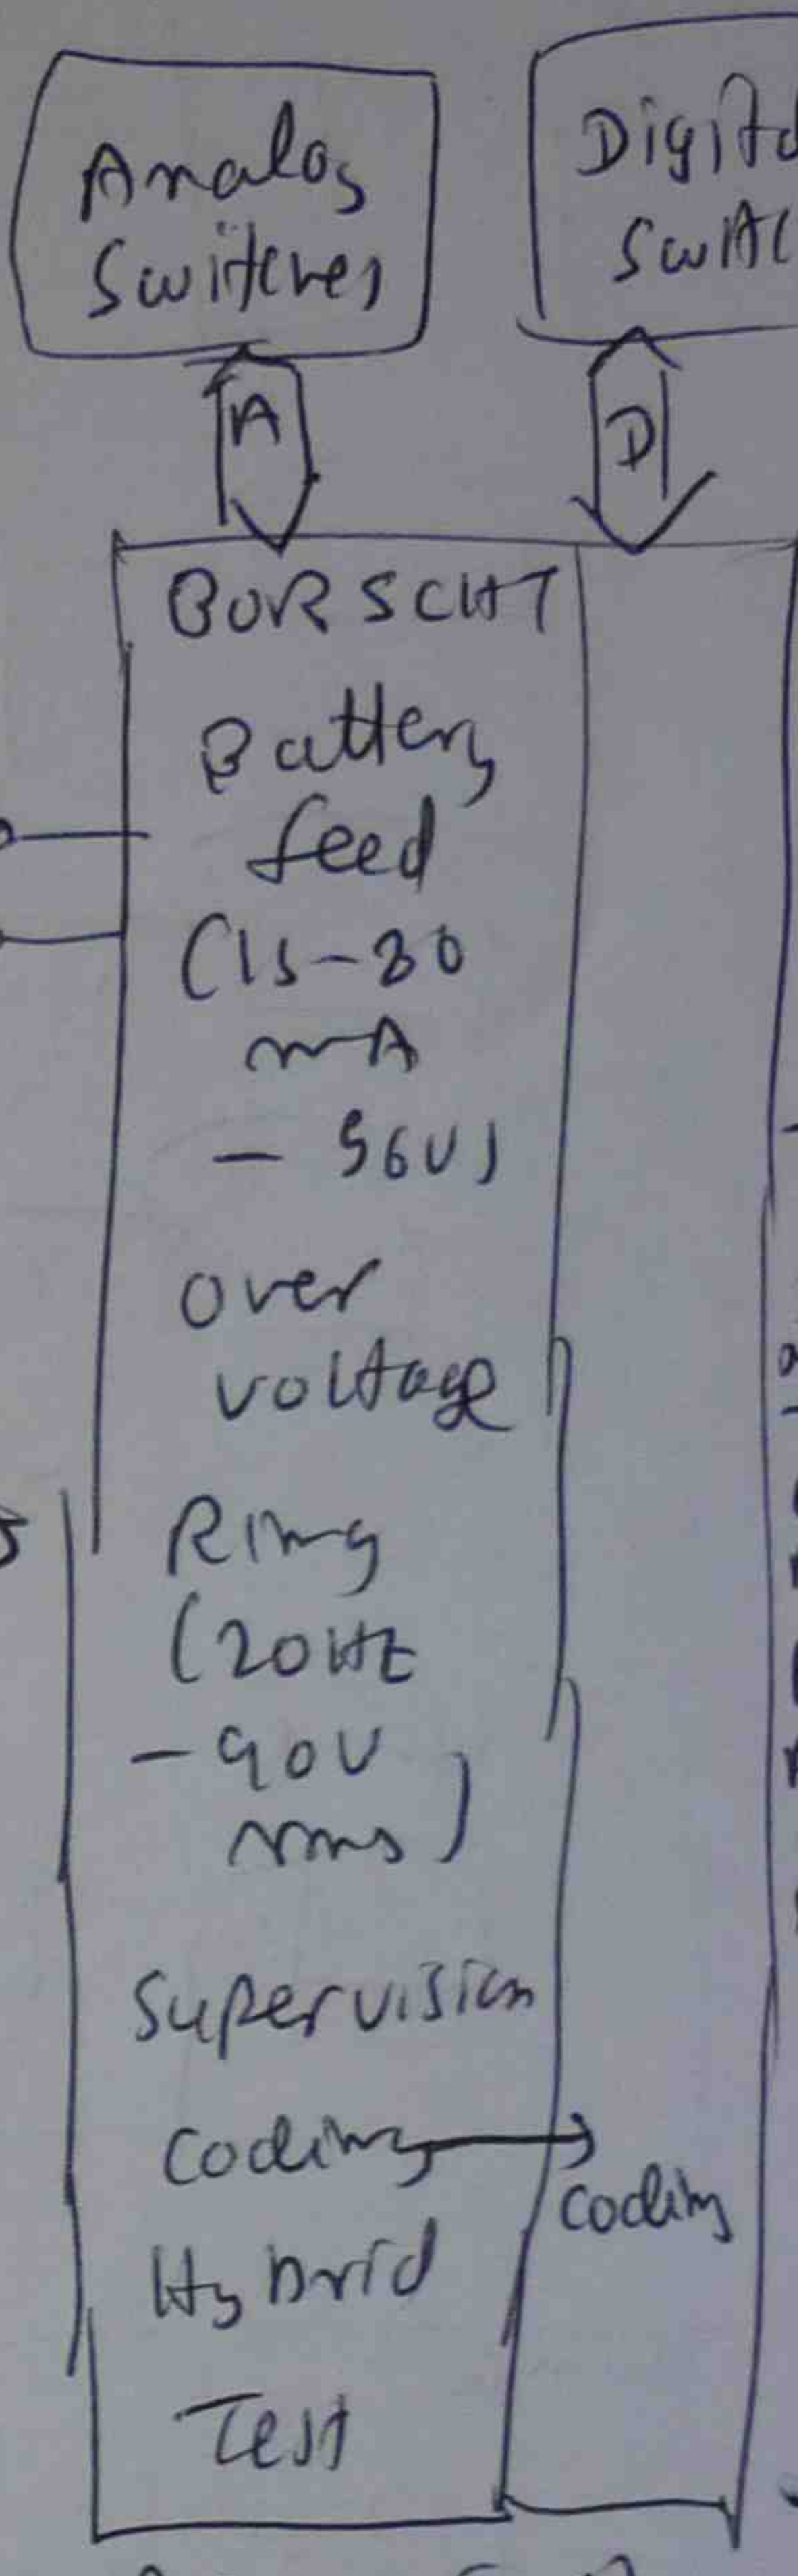 Analog
Switches
Digita
Switc
A
D
BORSCHT
Battery
feed
(15-80
mA
- 56V)
over
voltage
Ring
(20Hz
- 90V
rms)
Supervision
Coding
Coding
Hybrid
Test